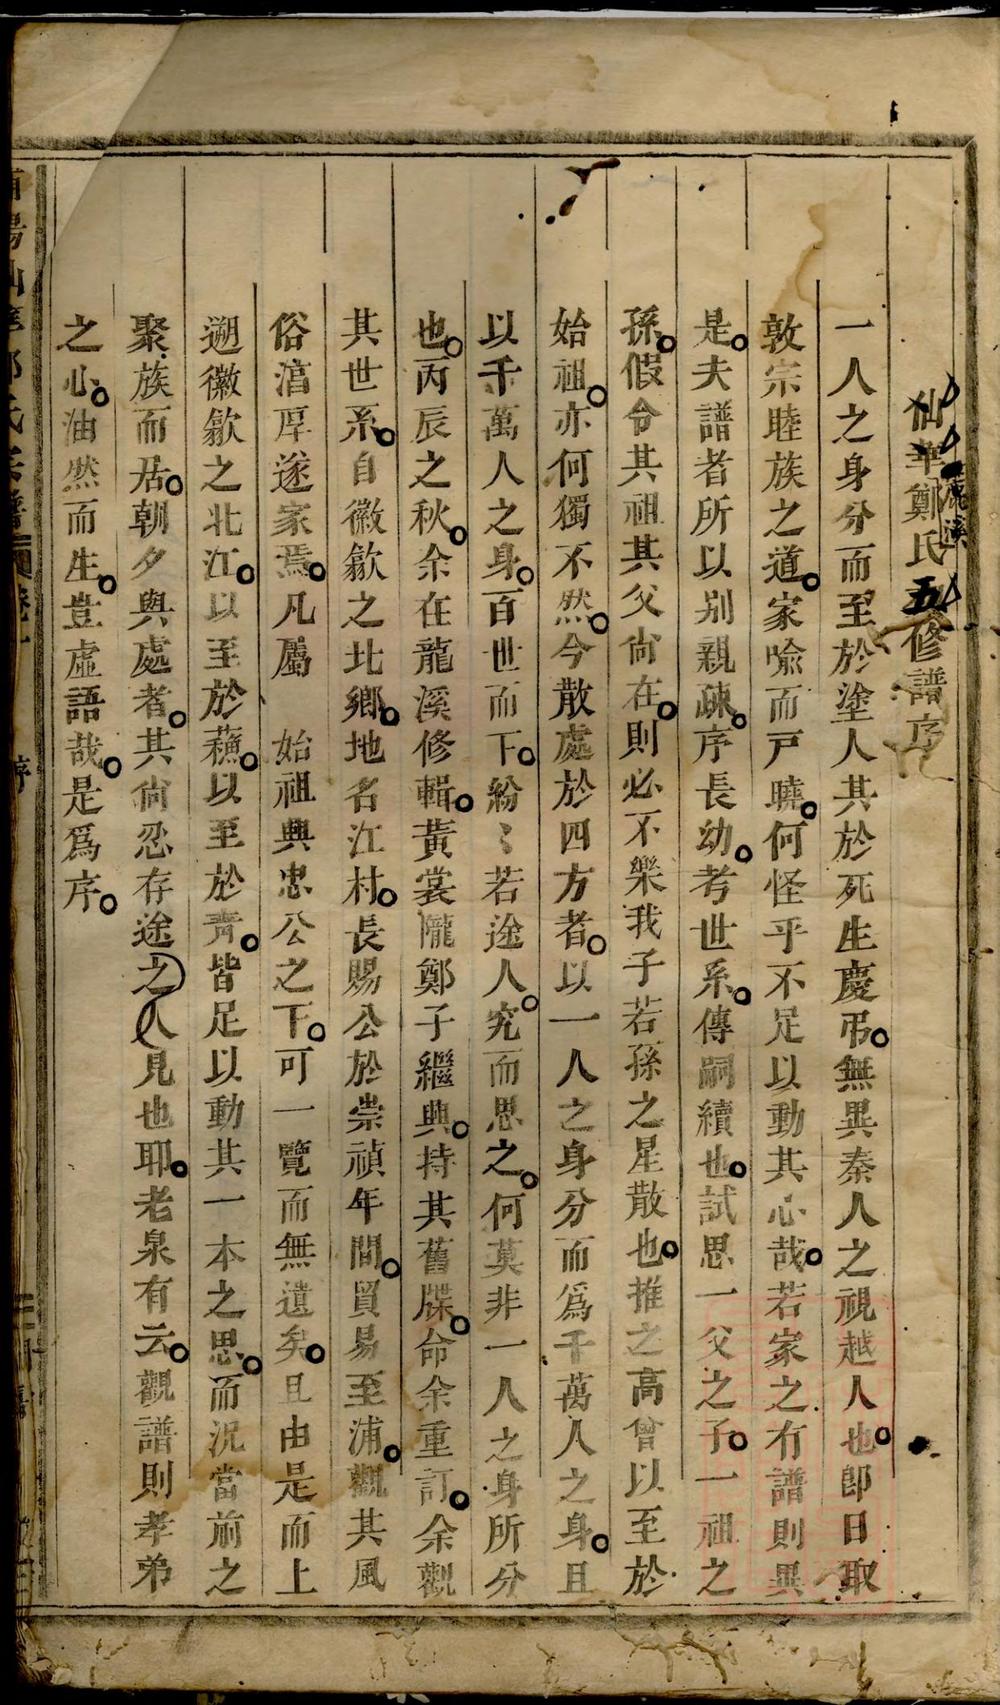 仙華鄭氏五修譜序
虎溪
一人之身分而至於塗人其於死生慶弔。無異秦人之視越人也。卽日取
敦宗睦族之道。家喻而戸曉。何怪乎不足以動其心哉。若家之有譜則異
是。夫譜者所以别親疎。序長幼。考世系。傳嗣續也。試思一父之子。一祖之
孫。假令其祖其父尙在。則必不樂我子若孫之星散也。推之高曾以至於
始祖。亦何獨不然。今散處於四方者。以一人之身分而爲千萬人之身。且
以千萬人之身。百世而下。紛〻若途人。究而思之。何莫非一人之身所分
也。丙辰之秋。余在龍溪修輯。黃裳隴鄭子繼興。持其舊牒。命余重訂。余觀
其世系。自徽歙之北鄉。地名江村。長賜公於崇禎年間。貿易至浦。觀其風
俗湻厚遂家焉。凡屬　始祖興忠公之下。可一覽而無遺矣。且由是而上
遡徽歙之北江。以至於蘓。以至於靑。皆足以動其一本之思。而況當前之
聚族而居。朝夕與處者。其尙忍存途之人見也耶。老泉有云。觀譜則孝弟
之心。油然而生。豈虛語哉。是爲序。